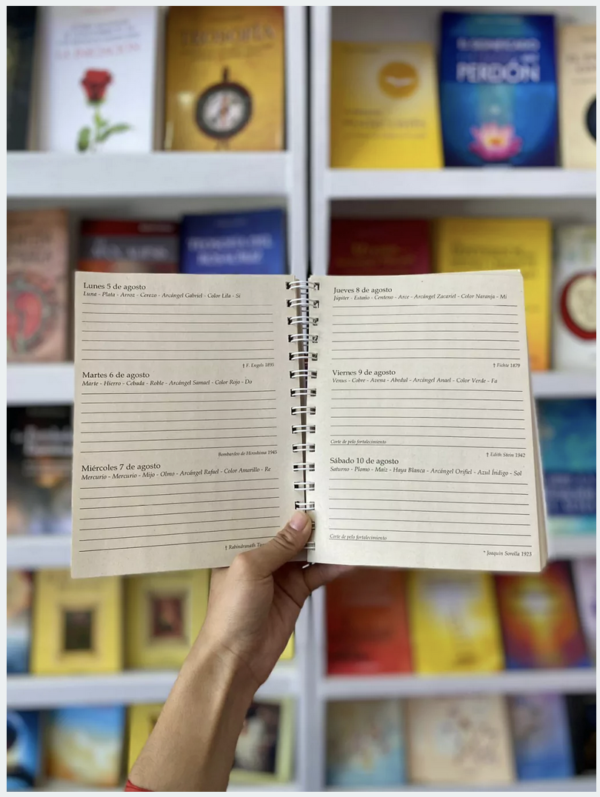 PERDÓN
Lunes 5 de agosto
Luna - Plata - Arroz - Cerezo - Arcángel Gabriel - Color Lila - Si
† F. Engels 1895
Martes 6 de agosto
Marte - Hierro - Cebada - Roble - Arcángel Samuel - Color Rojo - Do
Bombardeo de Hiroshima 1945
Miércoles 7 de agosto
Mercurio - Mercurio - Mijo - Olmo - Arcángel Rafael - Color Amarillo - Re
† Rabindranath
Jueves 8 de agosto
Júpiter - Estaño - Centeno - Arce - Arcángel Zacariel - Color Naranja - Mi
† Fichte 1879
Viernes 9 de agosto
Venus - Cobre - Avena - Abedul - Arcángel Anael - Color Verde - Fa
Corte de pelo fortalecimiento
† Edith Stein 1942
Sábado 10 de agosto
Saturno - Plomo - Maíz - Haya Blanca - Arcángel Orifiel - Azul Índigo - Sol
Corte de pelo fortalecimiento
* Joaquín Sorolla 1923